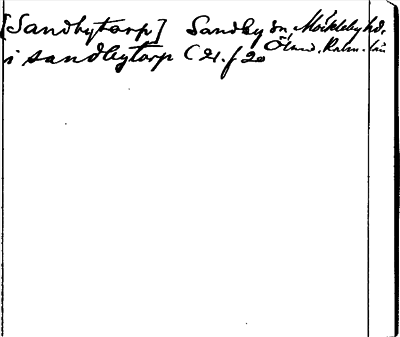 [Sandbytorp] Sandby sn, Möckleby hd,
Öland, Kalm. län
i sandbytorp C 21. f 20